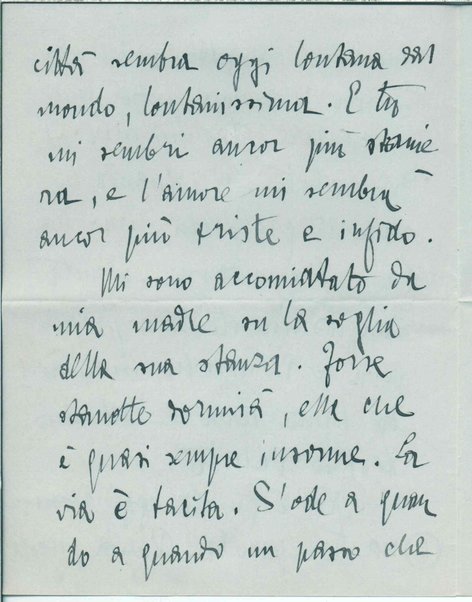 città sembra oggi lontana dal
mondo, lontanissima. E tu
mi sembri ancor più stranie
ra, e l'amore mi sembra
ancor più triste e infido.
Mi sono accomiatato da
mia madre su la soglia
della sua stanza. Forse
stanotte dormirà, ella che
è quasi sempre insonne. La
via è tacita. S'ode a quan
do a quando un passo che